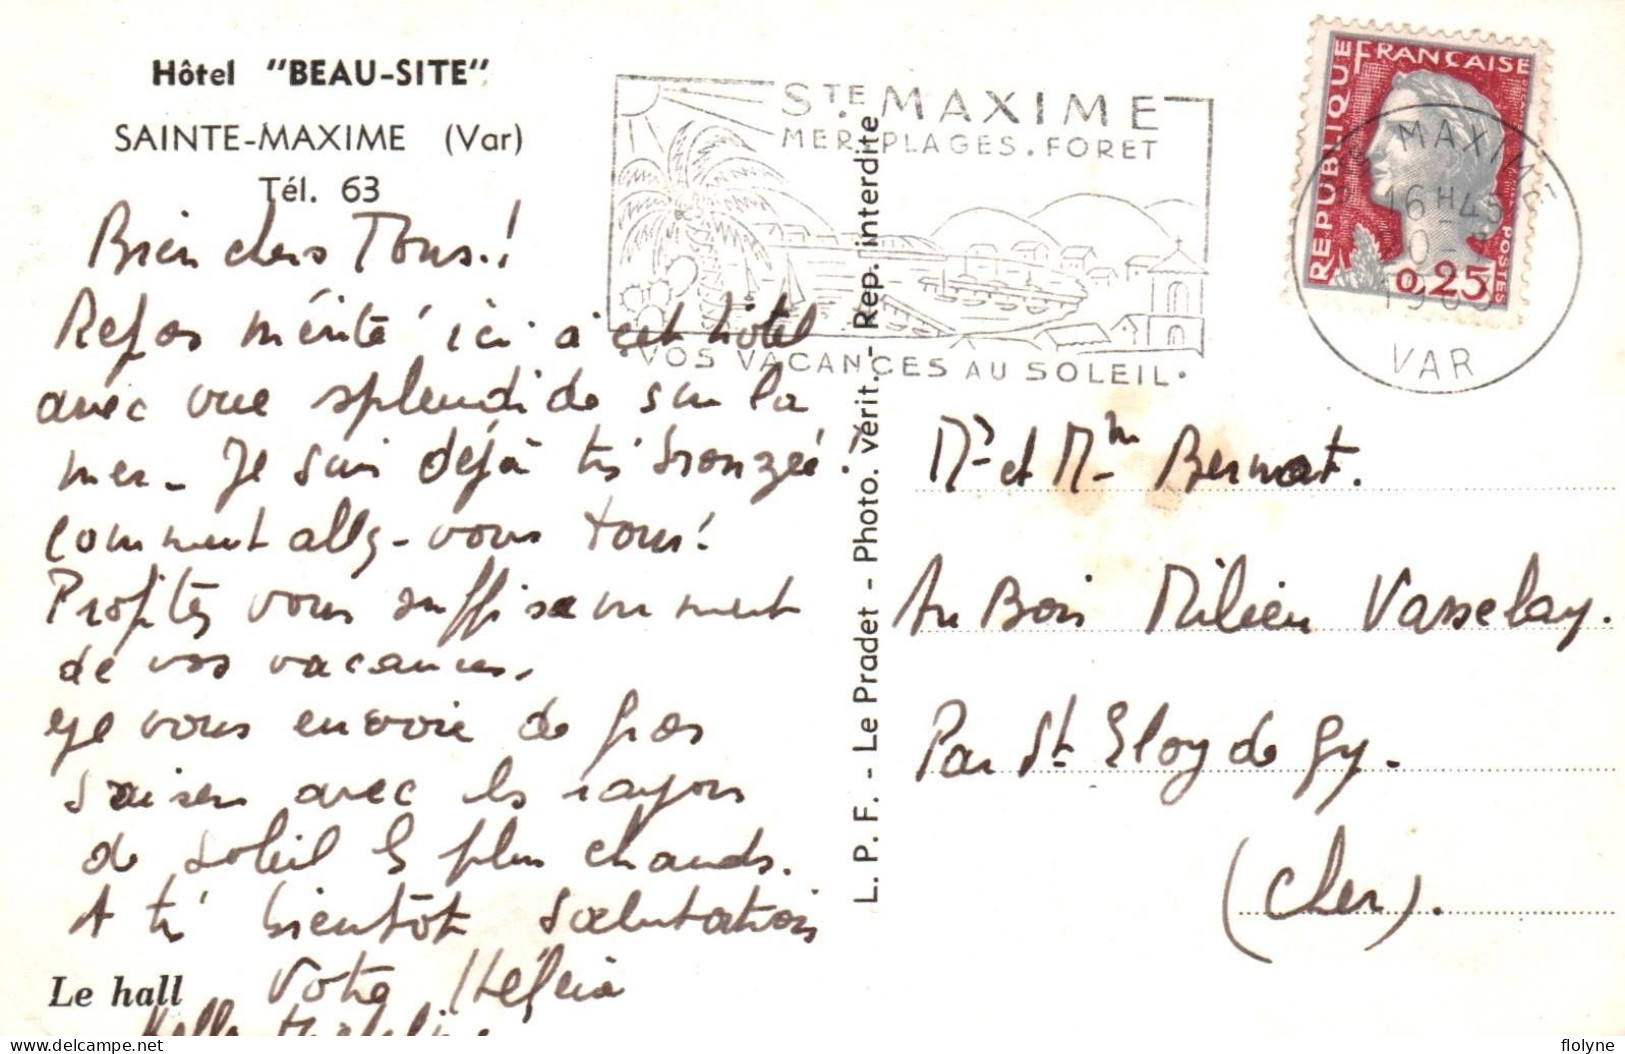 Hôtel "BEAU-SITE"
SAINTE-MAXIME (Var)
Tél. 63
Bien chers Tous.!
Repos mérité ici à cet hôtel
avec vue splendide sur la
mer. Je suis déjà très bronzée!
comment allez-vous tous!
Profitez vous suffisamment
de vos vacances.
Je vous envoie de gros
baisers avec les rayons
de soleil les plus chauds.
A très bientôt salutations
Votre
Le hall
STE. MAXIME
MER. PLAGES. FORET
VOS VACANCES AU SOLEIL.
REPUBLIQUE FRANÇAISE
POSTES
0,25
STE MAXIME
16H45
VAR
L. P. F. - Le Pradet - Photo. vérit. - Rep. interdite
Mr et Mm Bernot.
Au Bois Milieu Vasselay.
Par St Eloy de Gy.
(Cher).
flolyne